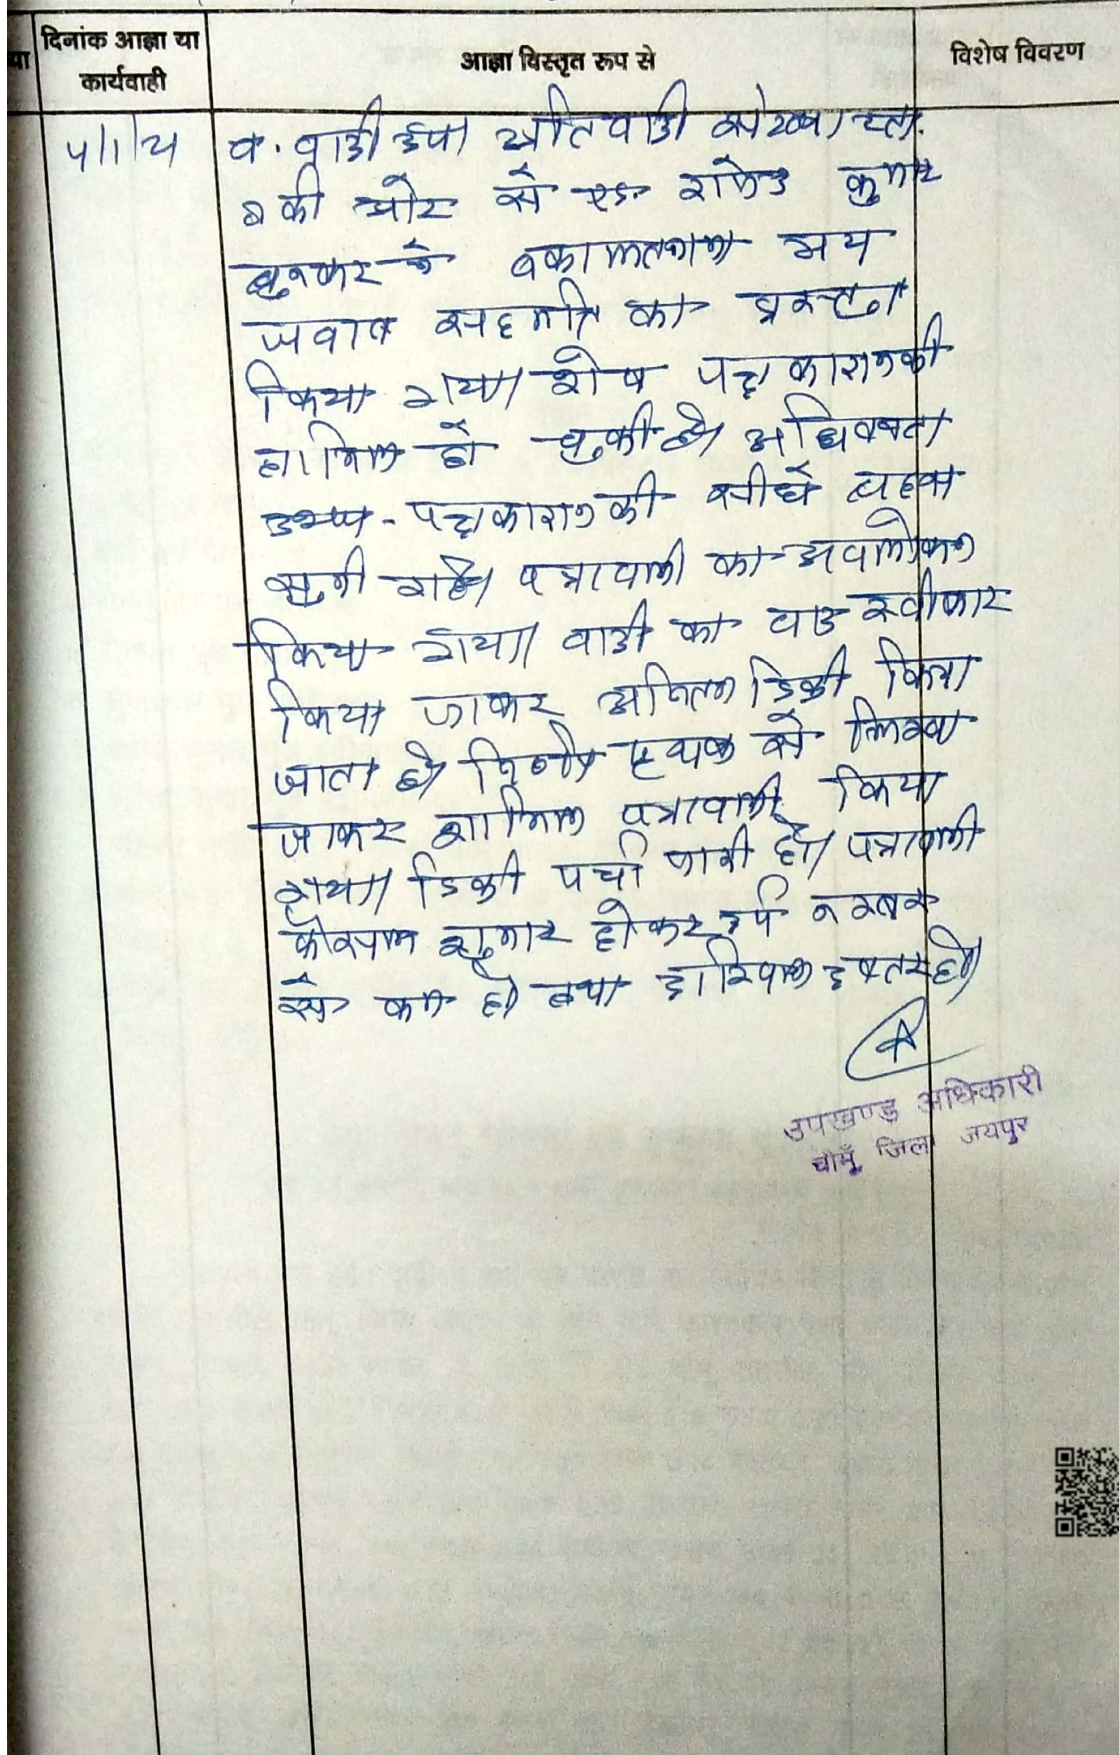 या
दिनांक आज्ञा या
कार्यवाही
आज्ञा विस्तृत रूप से
विशेष विवरण
व. वादी उप। प्रतिवादी
की ओर से एड. राकेश कुमार
बुनकर ने वकालतनामा मय
जवाब सहमति का प्रस्तुत
किया गया। शेष पक्षकारान की
तामिल हो चुकी है। अधिवक्ता
उभय-पक्षकारान की बहस
सुनी गई। पत्रावली का अवलोकन
किया गया। वादी का वाद स्वीकार
किया जाकर अन्तिम डिक्री किया
जाता है। निर्णय पृथक से लिखा
जाकर शामिल पत्रावली किया
गया। डिक्री पर्चा जारी हो। पत्रावली
फैसल शुमार होकर दर्ज नम्बर
से कम हो तथा दाखिल दफ्तर हो।
उपखण्ड अधिकारी
चौमूँ, जिला जयपुर